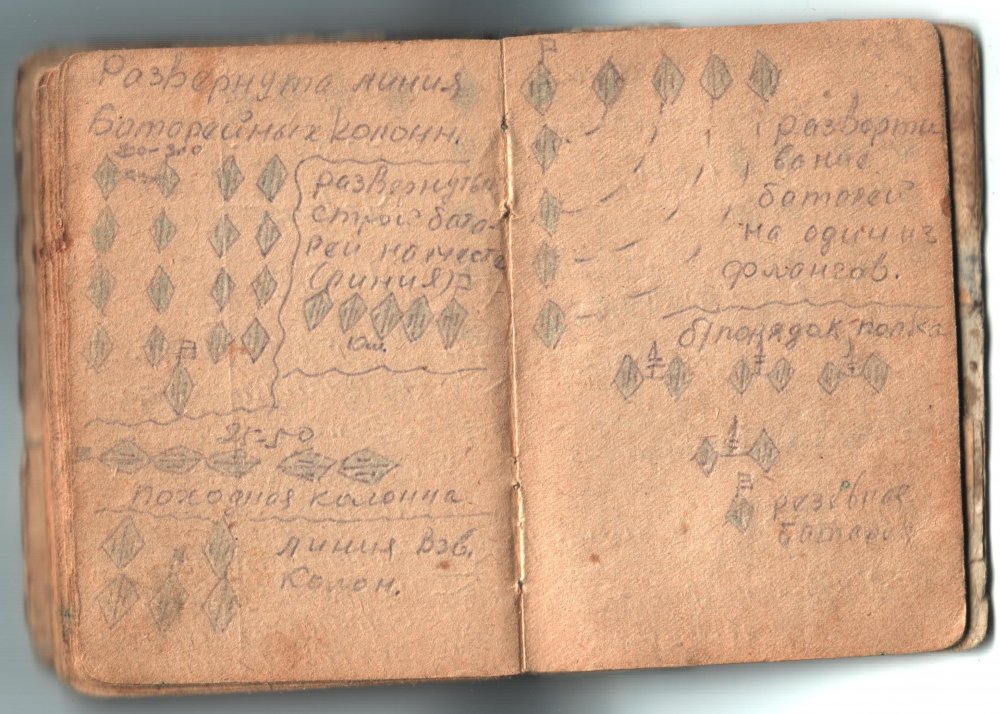 Развернута линия
батарейных колонн.
развернутый
строй бата-
рей на месте
(линия)
10м.
25-50
походная колонна
линия Взв.
Колон.
разверти
вание
батарей
на один из
флангов.
б/порядок полка
батарея